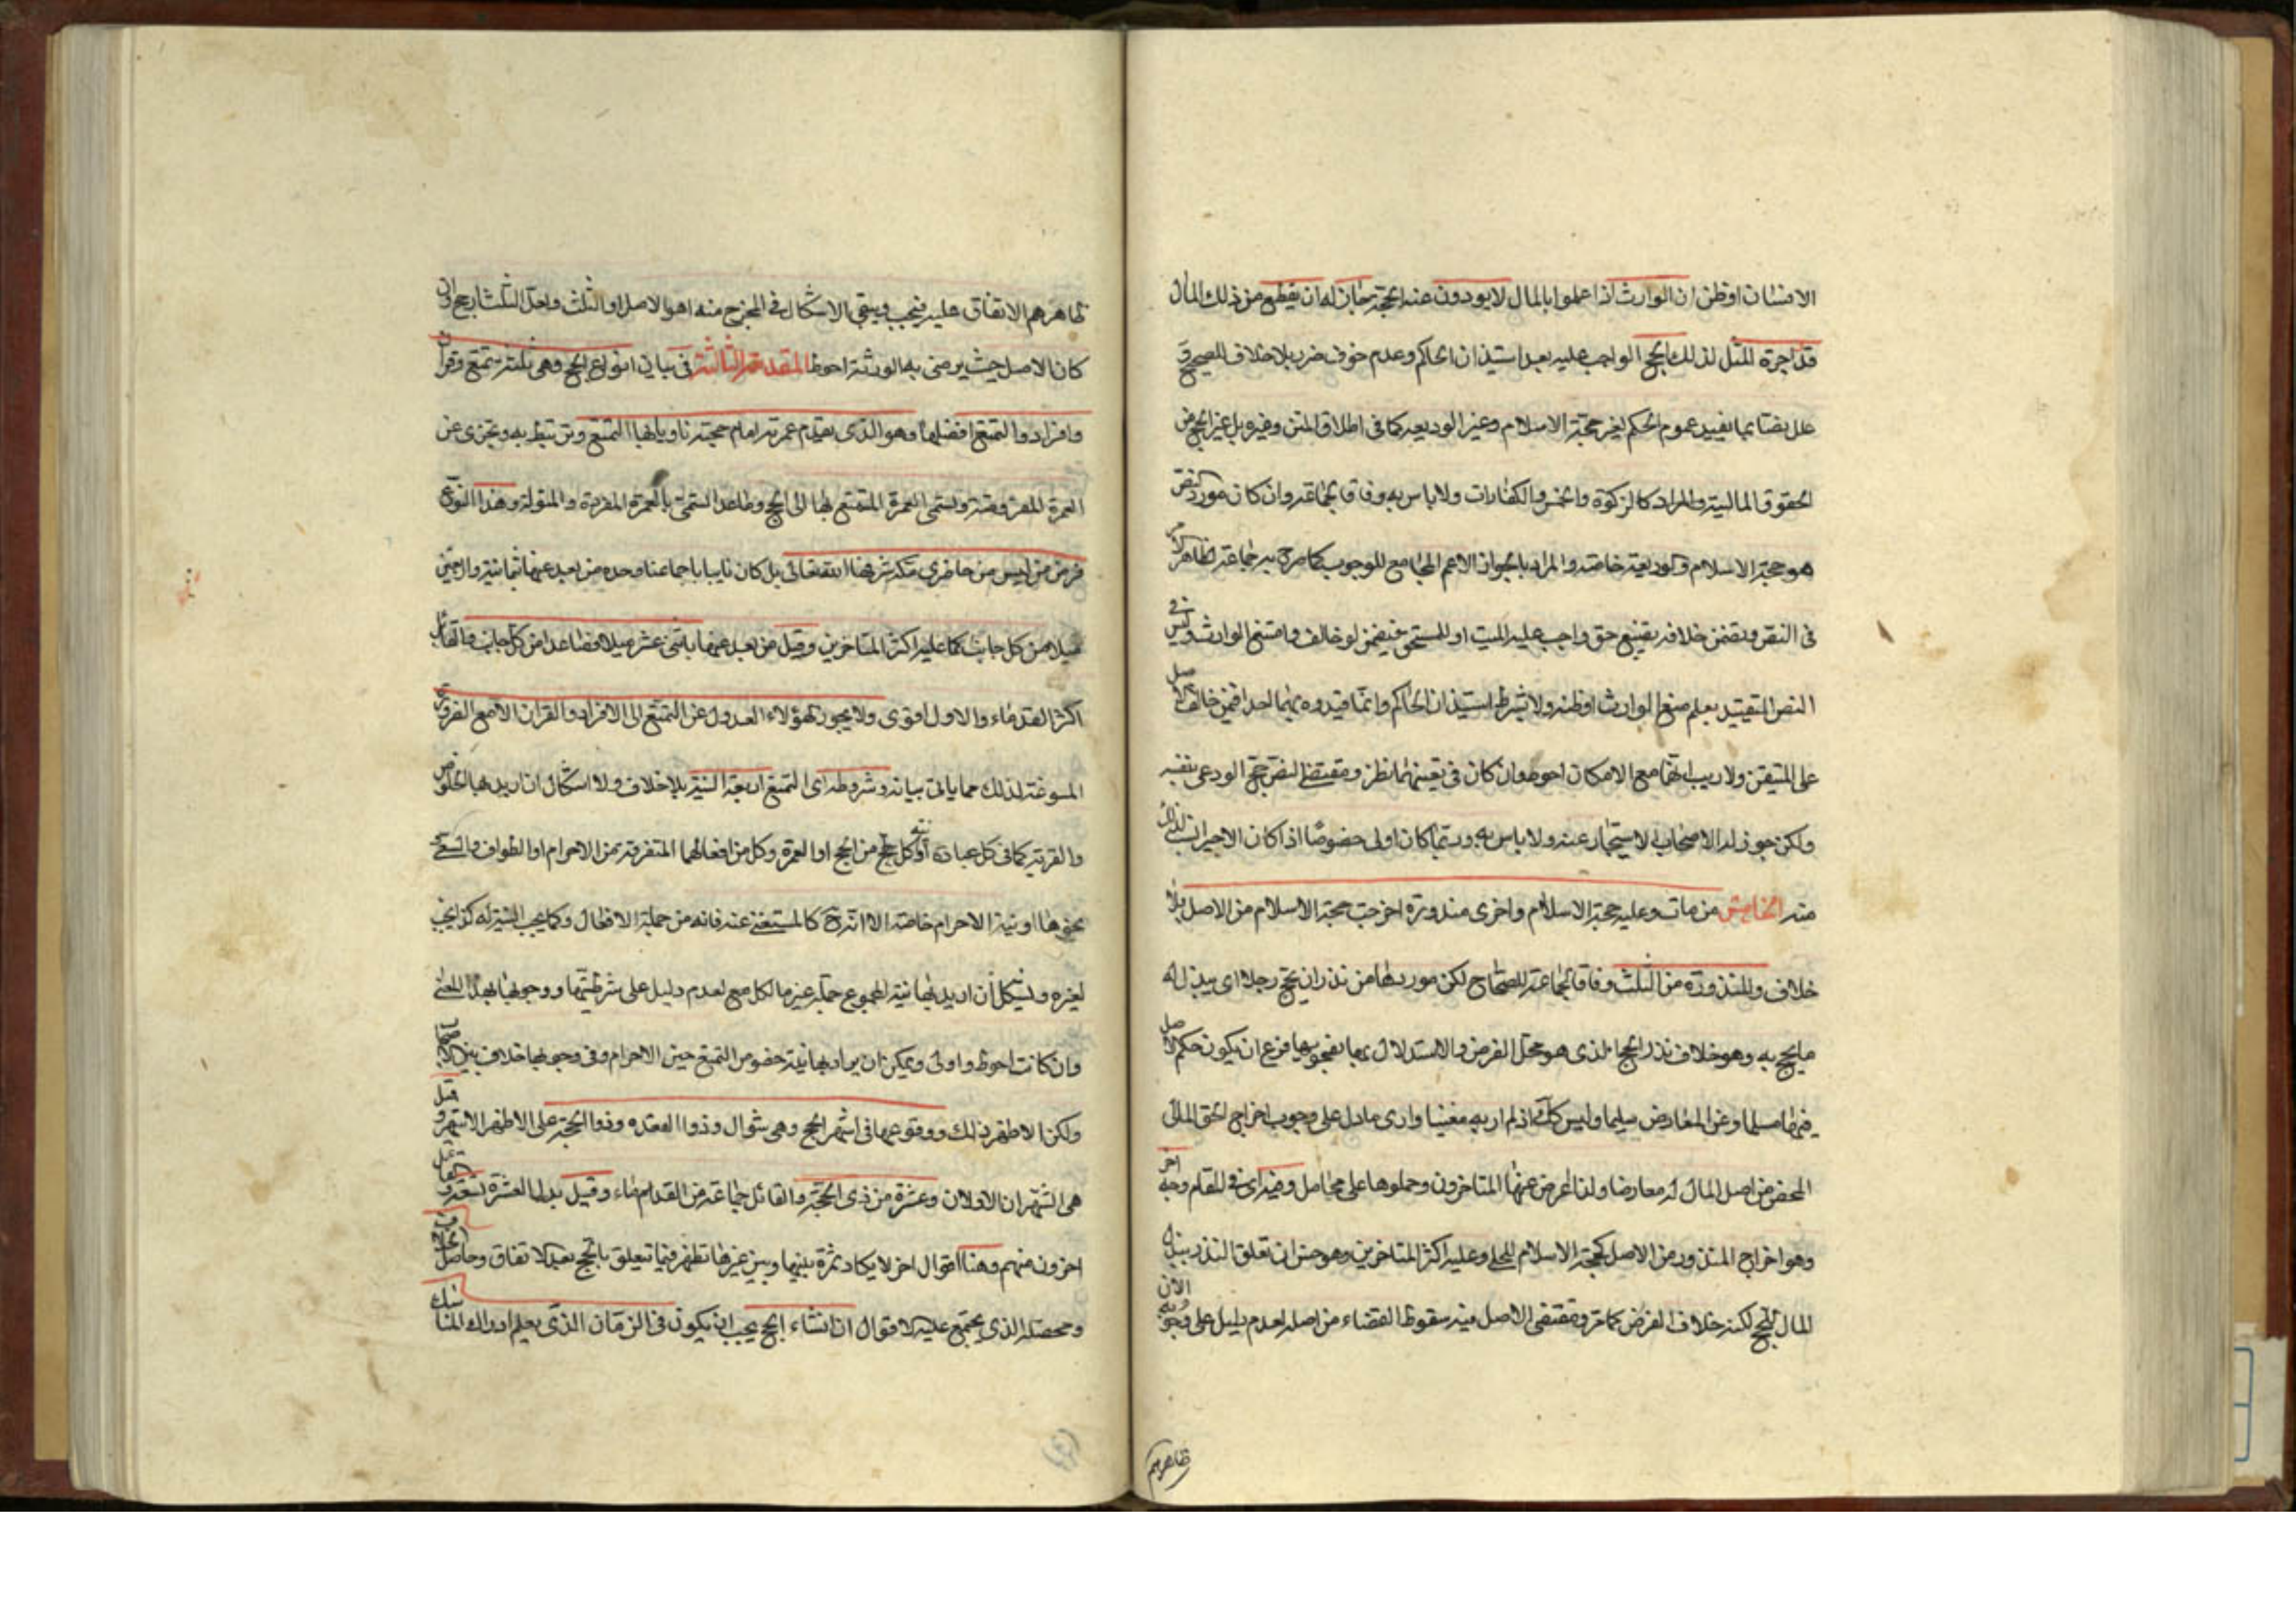 الانسان او ظن ان الوارث اذا علموا بالمال لا يودون عنه الحجة جاز له ان يقطع من ذلك المال
قدر اجرة المثل لذلك الحج الواجب عليه بعد استيذان الحاكم وعدم خوف ضرر بلا خلاف للصحيح
بل بفتا بما يفيد عموم الحكم لغير حجة الاسلام وغير الوديعة كما في اطلاق المتن وغيره بل غير الحج من
الحقوق المالية والمراد كالزكوة والخمس والكفارات ولا باس به وفاقا لجماعة وان كان مورد النص
هو حجة الاسلام والوديعة خاصة والمراد بالجواز الاعم الجامع للوجوب كما صرح به جماعة لظاهر الامر
في النص وتضمن خلافه تضييع حق واجب عليه الميت او للمستحق فيضمن لو خالف وامتنع الوارث وليس في
النص التقييد بعلم منع الوارث او ظنه ولا يشترط استيذان الحاكم وانما قيدوه بهما لحدا فيمن خالف الاصل
على المتيقن ولا ريب انهما مع الامكان احوط وان كان في تعينهما نظر ومقتضى النص حج الودعي بنفسه
ولكن جوز له الاصحاب الاستيجار عنه ولا باس به وربما كان اولى خصوصا اذا كان الاجير انسب لذلك
منه الخامس من مات وعليه حجة الاسلام واخرى منذورة اخرجت حجة الاسلام من الاصل بلا
خلاف والمنذورة من الثلث وفاقا لجماعة للصحاح لكن موردها من نذر ان يحج رجلا اي يبذل له
ما يحج به وهو خلاف نذر الحج الذي هو محل الفرض والاستدلال بها بفحويها فرع ان يكون حكم الاصل
فيها مسلما وعن المعارض سليما وليس كك اذ لم ار به مفتيا وارى ما دل على وجوب اخراج الحق المالي
المحض من اصل المال له معارضا ولذا اعرض عنها المتاخرون وحملوها على محامل وفيه اي في المقام وجه اخر
وهو اخراج المنذور من الاصل كحجة الاسلام للحلي وعليه اكثر المتاخرين وهو حسن ان تعلق النذر ببذل
المال للحج لكنه خلاف الفرض كما مر ومقتضى الاصل فيه سقوط القضاء من اصله لعدم دليل على وجوبه الا ان
ظاهرهم
ظاهرهم الاتفاق عليه فيجب ويبقى الاشكال في المخرج منه اهو الاصل او الثلث ولعل الثلث ارجح وان
كان الاصل حيث يرضى به الورثة احوط المقدمة الثالثة في بيان انواع الحج وهي ثلثة تمتع وقران
وافراد والتمتع افضلها وهو الذي يقدم عمرته امام حجته ناويا بها التمتع وترتبط به وتجزى عن
العمرة المفروضة وتسمى العمرة المتمتع بها الى الحج وما عداها تسمى بالعمرة المفردة والمبتولة وهذا النوع
فرض من ليس من حاضري مكة شرفها الله تعالى بل كان نايبا باجماعنا وحده من بعد عنها ثمانية واربعين
ميلا من كل جانب كما عليه اكثر المتاخرين وقيل من بعد عنها باثني عشر ميلا فصاعدا من كل جانب والقائل
اكثر القدماء والاول اقوى ولا يجوز لهؤلاء العدول عن التمتع الى الافراد والقران الا مع الضرورة
المسوغة لذلك مما ياتي بيانه وشروطه اي التمتع اربعة النية بلا خلاف ولا اشكال ان اريد بها الخلوص
والقربة كما في كل عبادة او كل حج من الحج او العمرة وكل من افعالهما المتفرقة من الاحرام او الطواف والسعي
ونحوها او نية الاحرام خاصة الا انه ح كالمستغنى عنه فانه من جملة الافعال وكما يجب النية له كذا يجب
لغيره ويشكل ان اريد بها نية المجموع جملة غير ما لكل مع لعدم دليل على شرطيتها ووجوبها بهذا المعنى
وان كانت احوط واولى ويمكن ان يراد بها نية خصوص التمتع حين الاحرام وفي وجوبها خلاف بين الاصحاب
ولكن الاظهر ذلك ووقوعها في اشهر الحج وهي شوال وذو القعدة وذو الحجة على الاظهر الاشهر وقيل
هي الشهران الاولان وعشرة من ذي الحجة والقائل جماعة من القدماء وقيل بدل العشرة تسعة والقائل
اخرون منهم وهنا اقوال اخر لا يكاد ثمرة بينها وبين غيرها تظهر فيما تتعلق بالحج بعد الاتفاق وحاصل
ومحصله الذي يجتمع عليه الاقوال ان انشاء الحج يجب ان يكون في الزمان الذي يعلم ادراك المناسك